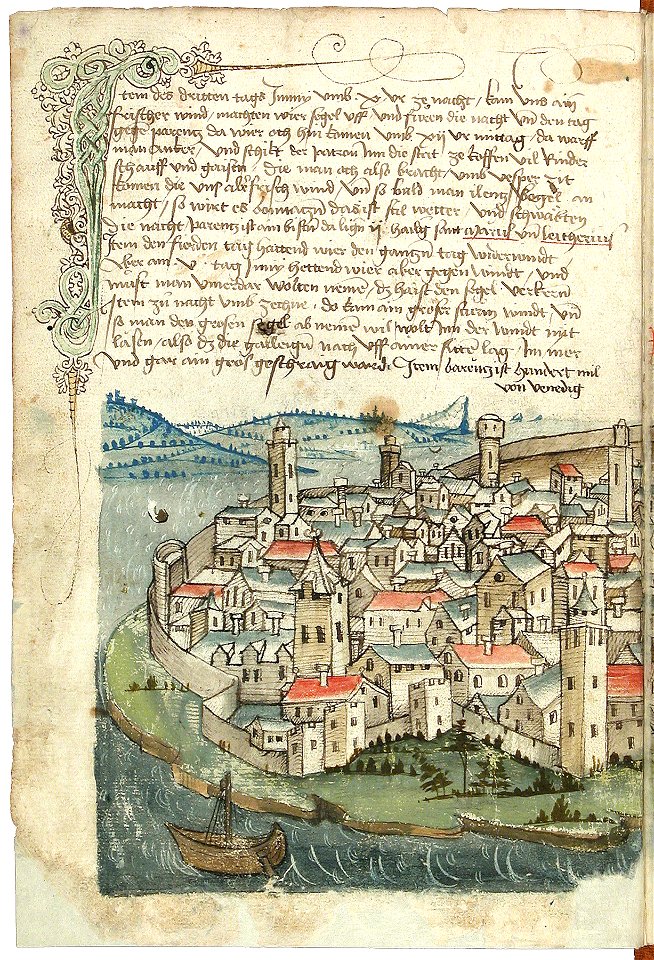 Item des dritten tags Juny vmb x vr ze nacht / kam vns ain
frischer wind / machten wier segel vff und furen die nacht vn̄ den tag
gege parentz da wier och hin kamen vmb xij vr mittag / da warff
man Ancker / vnd schikt der patron Inn die stat ze koffen vil Rinder
schauff vnd gaisen / die man och also bracht / vmb vesper zit
kamen die vns aber frisch wind vn̄ so bald man
macht / so wirt es das ist stil wetter / vnd schwäbten
die nacht parentz ist ain bistū da lighn ij hailg sant Marus vn̄
Item den fierden tag hattend wier den gantzn̄ tag widerwindt
Aber am v tag Juny hettend wier aber gegen windt / vnd
must man vmerdar wolten neme / dz haist den segel verkern̄
Item zů nacht vmb zechne / do kam ain groser sturm windt vn̄
so man den grosen segel ab nemen wil wolt Inn der windt nit
lasen / also dz die galleign̄ nach vff ainer sitten lag / Im mer
vnd gar ain gros geschraig ward. Item barentz ist hundert mil
von Venedig